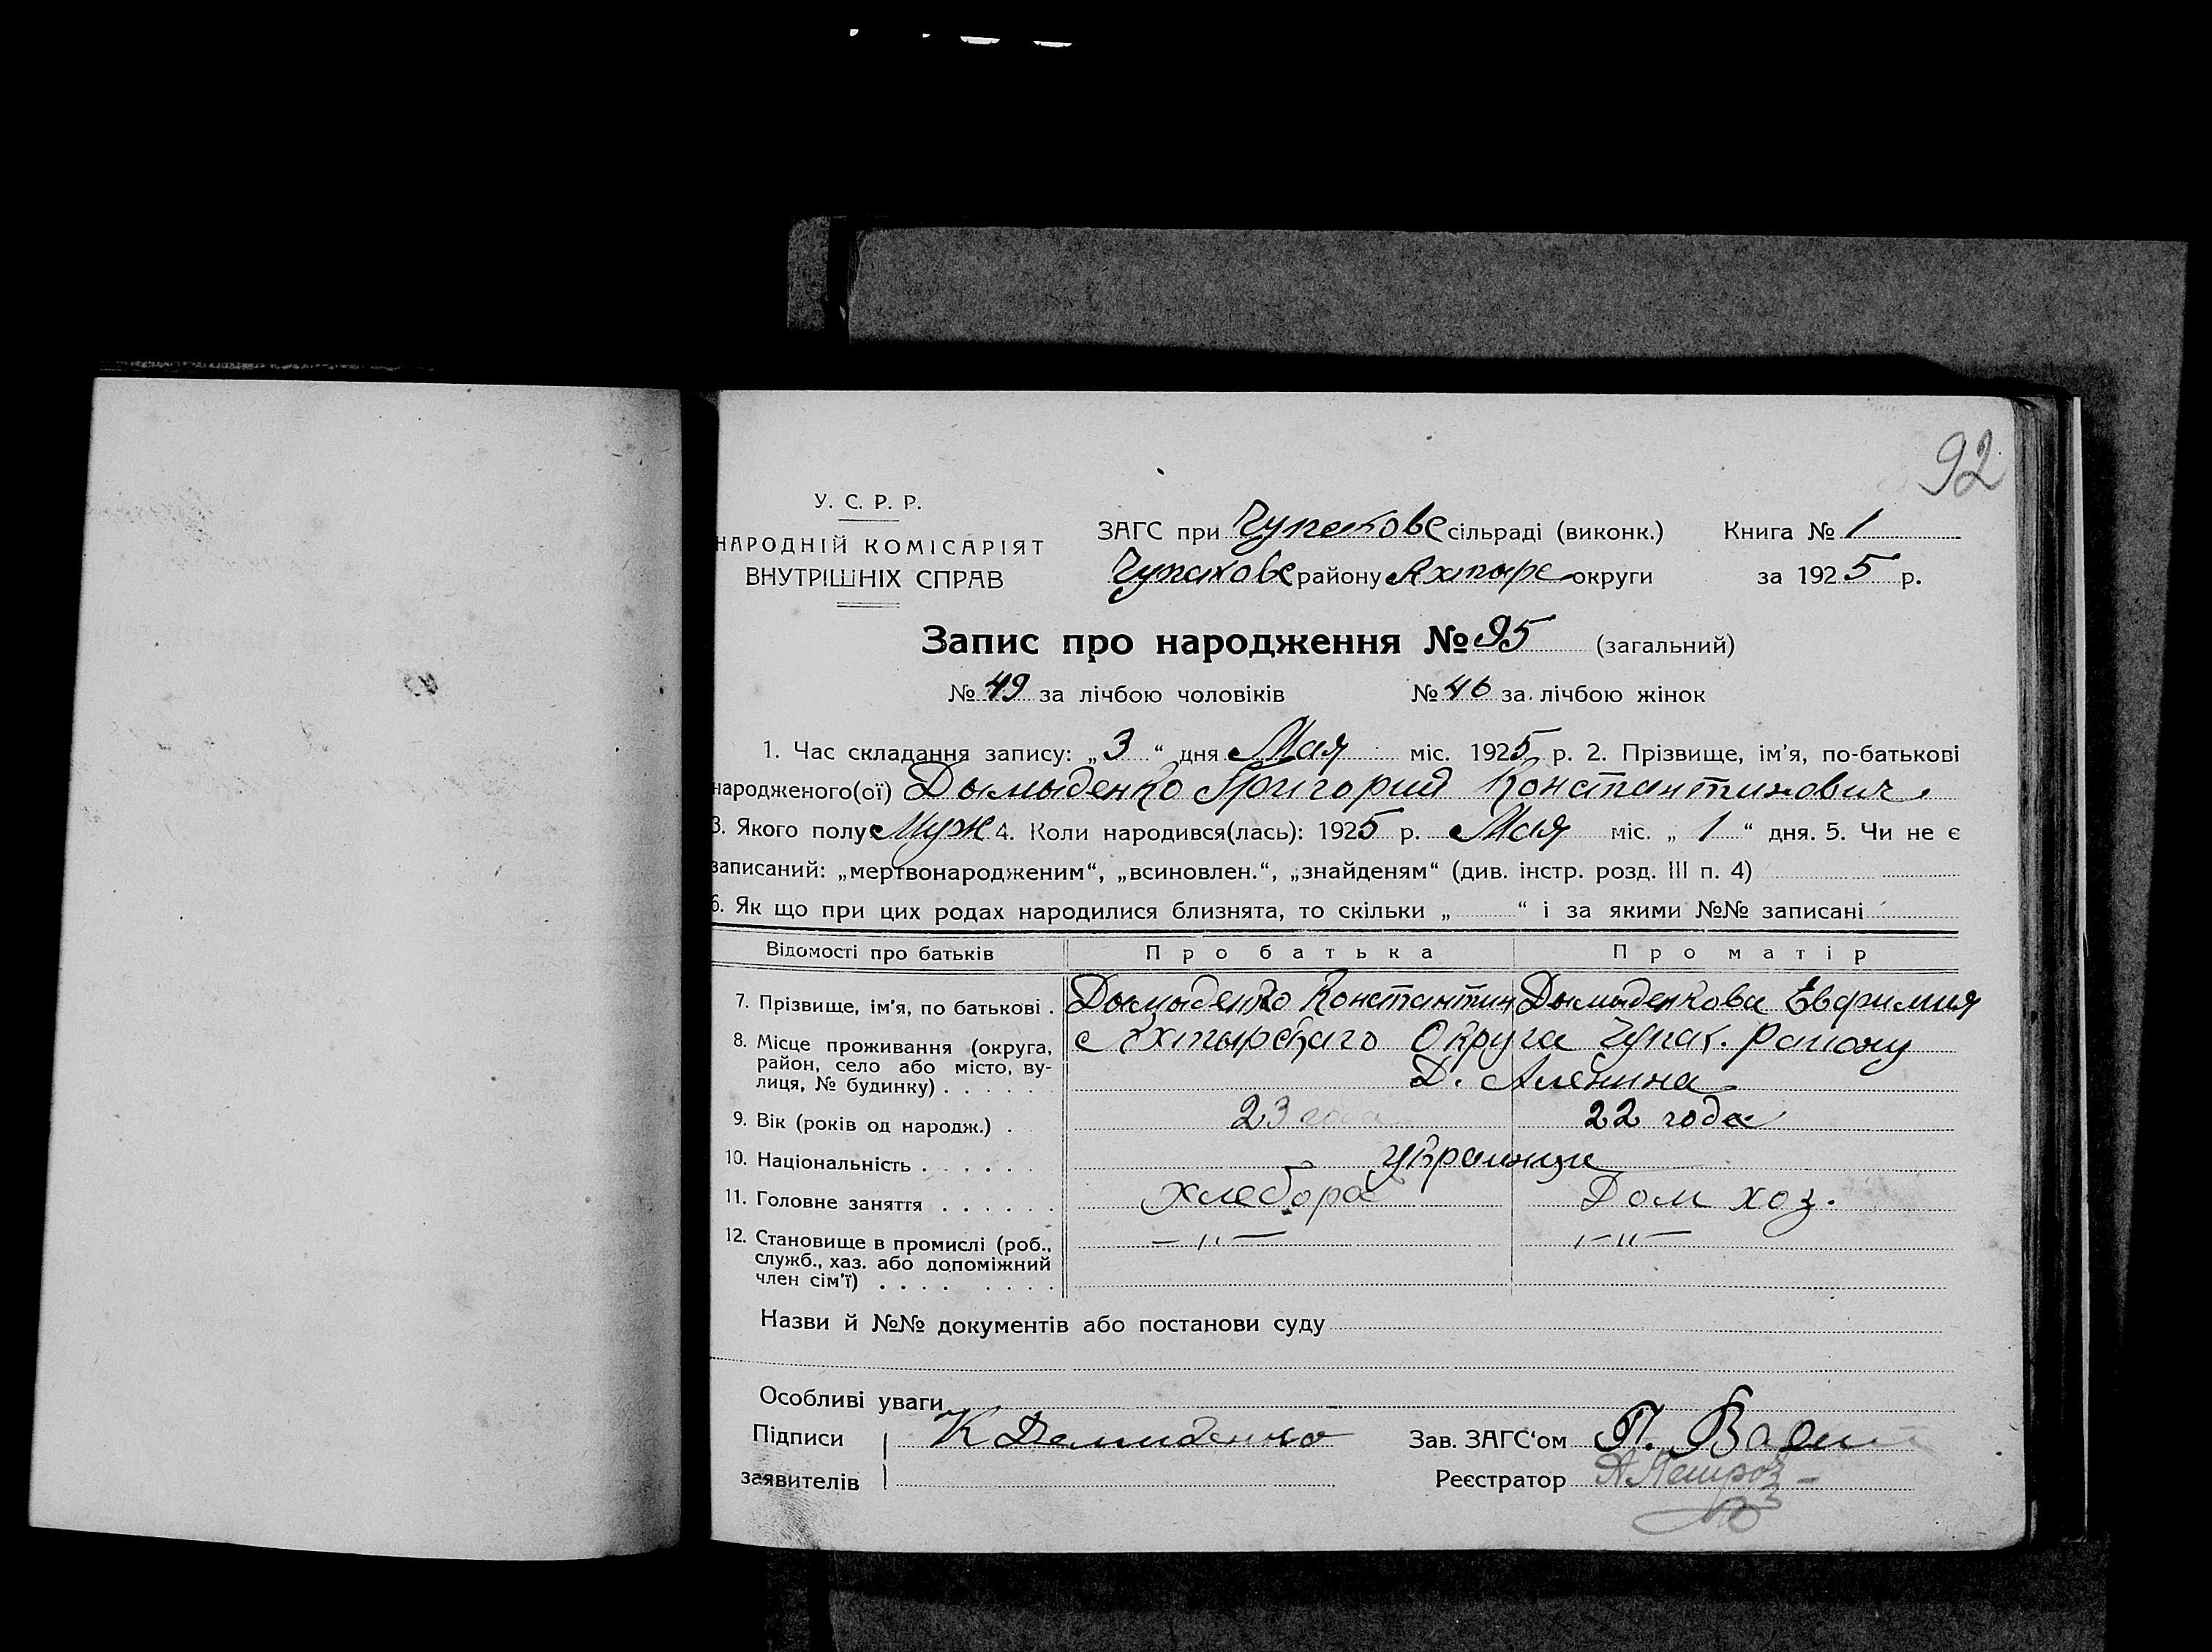 92
У. С. Р. Р.
НАРОДНІЙ КОМІСАРІЯТ
ВНУТРІШНІХ СПРАВ
ЗАГС при Чупахове сільраді (виконк.) Книга № 1
Чупахове району Ахтырс округи за 1925 р.
Запис про народження № 95 (загальний)
№ 49 за лічбою чоловіків № 46 за лічбою жінок
1. Час складання запису: „3“ дня Мая міс. 1925 р. 2. Прізвище, ім'я, по-батькові
народженого(ої) Дымыденко Григорий Константинович.
3. Якого полу Муж 4. Коли народився(лась): 1925 р. Мая міс. „1“ дня. 5. Чи не є
записаний: „мертвонародженим“, „всиновлен.“, „знайденям“ (див. інстр. розд. III п. 4)
6. Як що при цих родах народилися близнята, то скільки „ “ і за якими №№ записані
Відомості про батьків Про батька Про матір
7. Прізвище, ім'я, по батькові . Дымыденко Константин Дымыденкова Евфимия
8. Місце проживання (округа, Ахтырскаго Округа Чупах. району
район, село або місто, ву-
лиця, № будинку) . . . . . Д. Аленина
9. Вік (років од народж.) . 23 года 22 года
10. Національність . . . . . . украинцы
11. Головне заняття . . . . . . хлебороб Дом хоз.
12. Становище в промислі (роб., — „ — — „ —
служб., хаз. або допоміжний
член сім'ї) . . . . . . . .
Назви й №№ документів або постанови суду
Особливі уваги
Підписи К Демиденко Зав. ЗАГС‘ом П.
заявителів Реєстратор А Петров